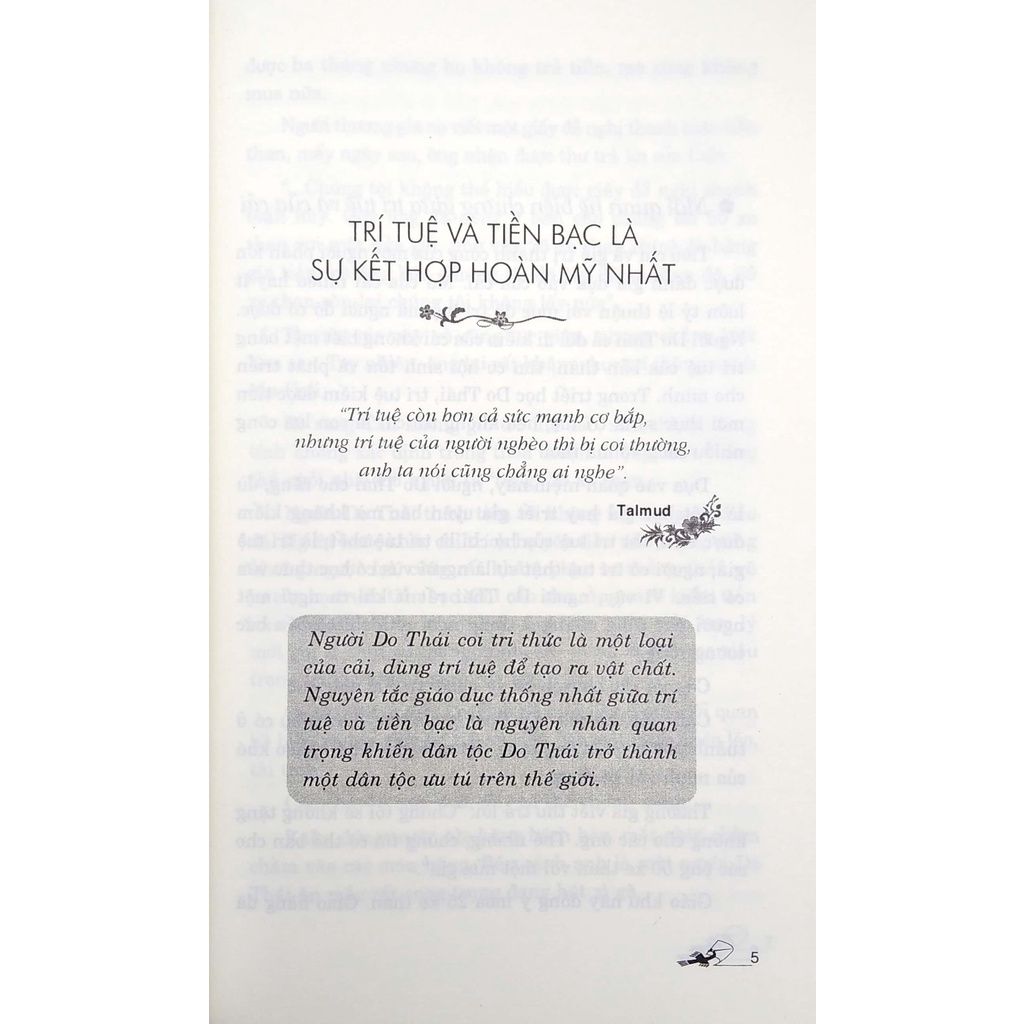 TRÍ TUỆ VÀ TIỀN BẠC LÀ
SỰ KẾT HỢP HOÀN MỸ NHẤT
“Trí tuệ còn hơn cả sức mạnh cơ bắp,
nhưng trí tuệ của người nghèo thì bị coi thường,
anh ta nói cũng chẳng ai nghe”.
Talmud
Người Do Thái coi tri thức là một loại
của cải, dùng trí tuệ để tạo ra vật chất.
Nguyên tắc giáo dục thống nhất giữa trí
tuệ và tiền bạc là nguyên nhân quan
trọng khiến dân tộc Do Thái trở thành
một dân tộc ưu tú trên thế giới.
5